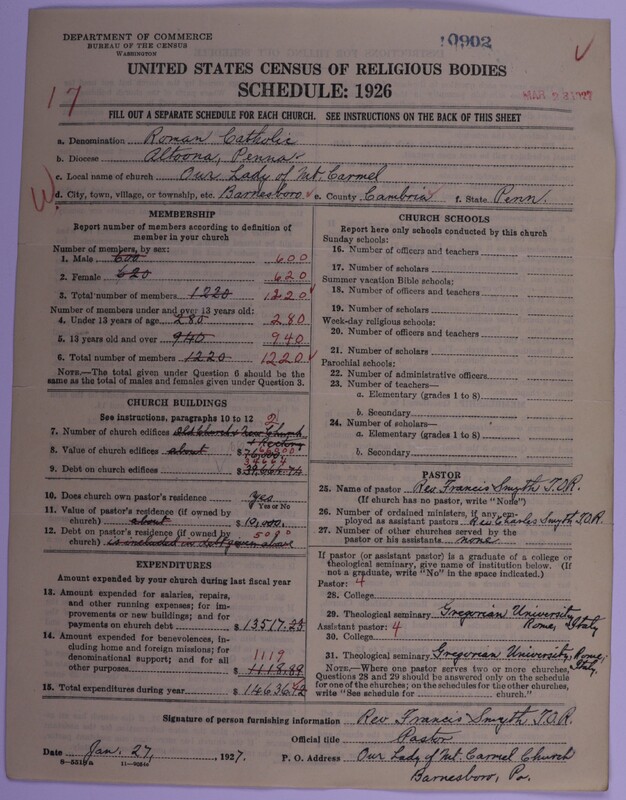 DEPARTMENT OF COMMERCE
BUREAU OF THE CENSUS
WASHINGTON
10902
UNITED STATES CENSUS OF RELIGIOUS BODIES
SCHEDULE: 1926
MAR 23 1927
17
FILL OUT A SEPARATE SCHEDULE FOR EACH CHURCH. SEE INSTRUCTIONS ON THE BACK OF THIS SHEET
a. Denomination Roman Catholic
b. Diocese Altoona, Penna.
c. Local name of church Our Lady of Mt. Carmel
d. City, town, village, or township, etc. Barnesboro e. County Cambria f. State Penn.
MEMBERSHIP
Report number of members according to definition of member in your church
Number of members, by sex:
1. Male 600 600
2. Female 620 620
3. Total number of members 1220 1220
Number of members under and over 13 years old:
4. Under 13 years of age 280 280
5. 13 years old and over 940 940
6. Total number of members 1220 1220
NOTE.—The total given under Question 6 should be the same as the total of males and females given under Question 3.
CHURCH BUILDINGS
See instructions, paragraphs 10 to 12 2
7. Number of church edifices Old Church & New Church
+ Rectory
8. Value of church edifices about $
9. Debt on church edifices $ 39,664.74
10. Does church own pastor's residence Yes
Yes or No
11. Value of pastor's residence (if owned by church) about $ 10,000.
12. Debt on pastor's residence (if owned by church) is included in debt given above 5000
EXPENDITURES
Amount expended by your church during last fiscal year
13. Amount expended for salaries, repairs, and other running expenses; for improvements or new buildings; and for payments on church debt $ 13517.23
14. Amount expended for benevolences, including home and foreign missions; for denominational support; and for all other purposes $ 1118.89 1119
15. Total expenditures during year $ 14636.
CHURCH SCHOOLS
Report here only schools conducted by this church
Sunday schools:
16. Number of officers and teachers
17. Number of scholars
Summer vacation Bible schools:
18. Number of officers and teachers
19. Number of scholars
Week-day religious schools:
20. Number of officers and teachers
21. Number of scholars
Parochial schools:
22. Number of administrative officers
23. Number of teachers—
a. Elementary (grades 1 to 8)
b. Secondary
24. Number of scholars—
a. Elementary (grades 1 to 8)
b. Secondary
PASTOR
25. Name of pastor Rev. Francis Smyth T.O.R.
(If church has no pastor, write "None")
26. Number of ordained ministers, if any, employed as assistant pastors Rev. Charles Smyth T.O.R.
27. Number of other churches served by the pastor or his assistant none
If pastor (or assistant pastor) is a graduate of a college or theological seminary, give name of institution below. (If not a graduate, write "No" in the space indicated.)
Pastor: 4
28. College
29. Theological seminary Gregorian University, Rome, Italy
Assistant pastor: 4
30. College
31. Theological seminary Gregorian University, Rome, Italy.
NOTE.—Where one pastor serves two or more churches, Questions 28 and 29 should be answered only on the schedule for one of the churches; on the schedules for the other churches, write "See schedule for church."
Signature of person furnishing information Rev. Francis Smyth T.O.R.
Official title Pastor
Date Jan. 27, 1927. P. O. Address Our Lady of Mt. Carmel Church
Barnesboro, Pa.